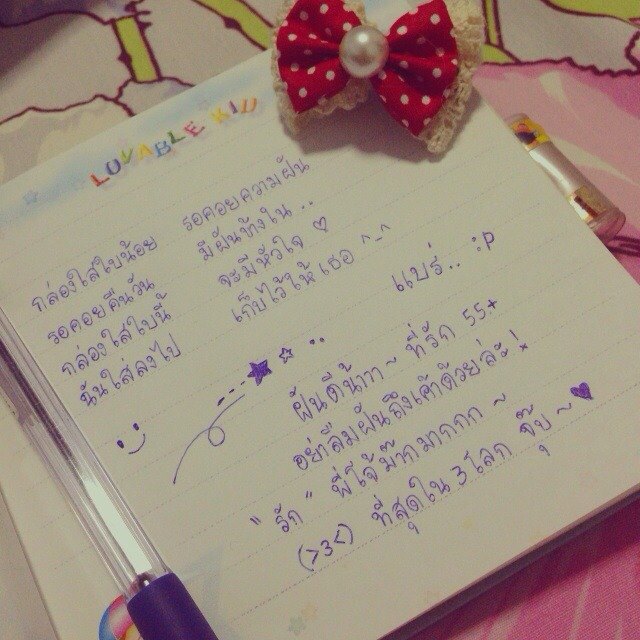 LOVABLE KID
กล่องใส่ใบน้อย รอคอยความฝัน
รอคอยคืนวัน มีฝันข้างใน ..
กล่องใส่ใบนี้ จะมีหัวใจ ♡
ฉันใส่ลงไป เก็บไว้ให้เธอ ^_^
แบร่.. :P
ฝันดีน้าาา~ ที่รัก 55+
อย่าลืมฝันถึงเค้าด้วยล่ะ!
"รัก" พี่โจ้ม๊ากมากกก ~
(>3<) ที่สุดใน 3 โลก จุ๊บ ~ ♥